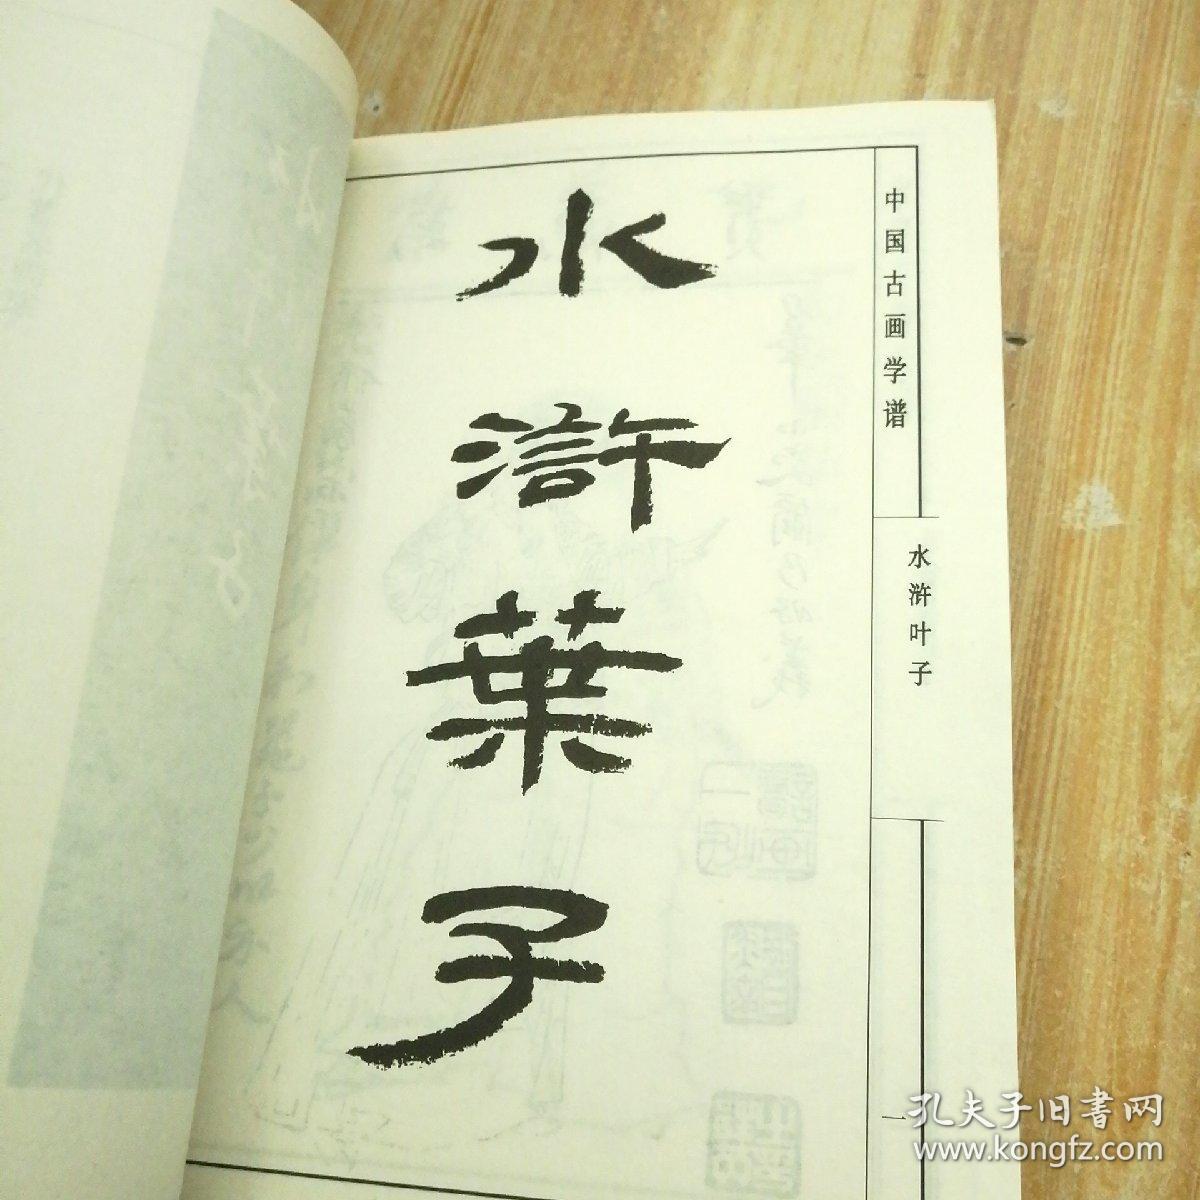 水滸葉子
中国古画学谱
水浒叶子
一
孔夫子旧书网
www.kongfz.com